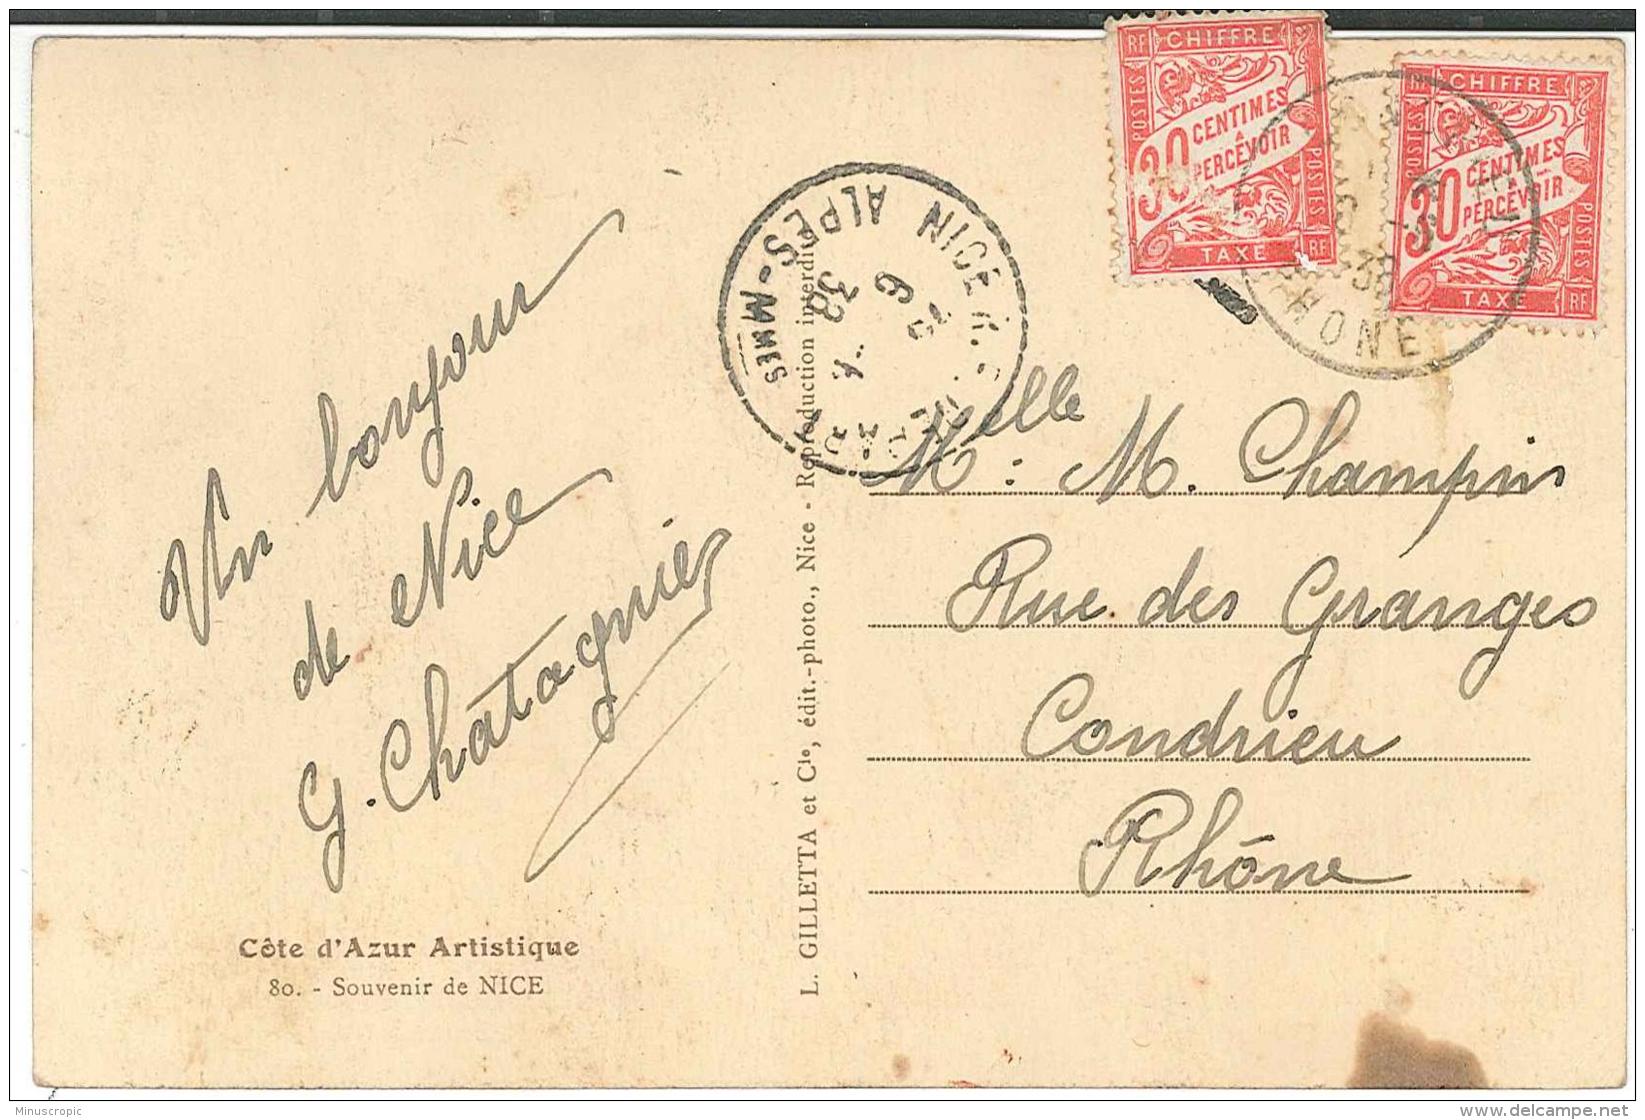 RF CHIFFRE
POSTES
30 CENTIMES
A
PERCEVOIR
POSTES
TAXE RF
RF CHIFFRE
POSTES
30 CENTIMES
A
PERCEVOIR
POSTES
TAXE RF
RHONE
38
NICE R.
ALPES-MMES
38
Un bonjour
de Nice
G. Chatagnier
Côte d'Azur Artistique
80. - Souvenir de NICE
L. GILLETTA et Cie, édit.-photo., Nice - Reproduction interdite
Melle : M. Champin
Rue des Granges
Condrieu
Rhône
Minuscropic
www.delcampe.net